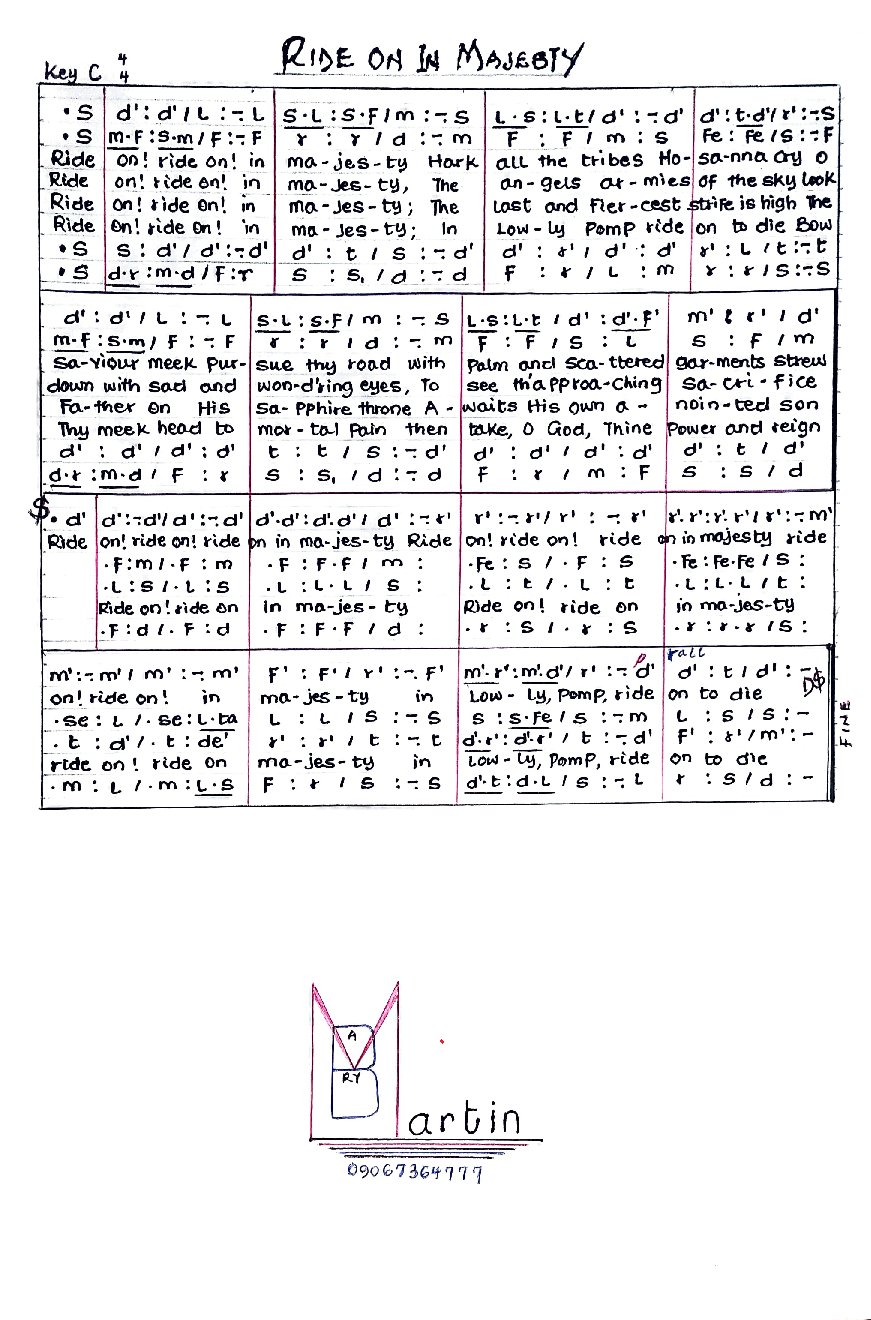 RIDE ON IN MAJESTY
Key C 4/4
•S | d' : d' / L : -. L | S.L : S.F / m : -. S | L.S : L.t / d' : -. d' | d' : t.d' / r' : -. S
•S | m.F : S.m / F : -. F | r : r / d : -. m | F : F / m : S | Fe : Fe / S : -. F
Ride | on! ride on! in | ma-jes-ty Hark | all the tribes Ho- | sa-nna cry O
Ride | on! ride on! in | ma-jes-ty, The | an-gels ar-mies | of the sky look
Ride | on! ride on! in | ma-jes-ty; The | Last and Fier-cest | strife is high The
Ride | on! ride on! in | ma-jes-ty; In | Low-ly Pomp ride | on to die Bow
•S | S : d' / d' : -. d' | d' : t / S : -. d' | d' : r' / d' : d' | r' : L / t : -. t
•S | d.r : m.d / F : r | S : S, / d : -. d | F : r / L : m | r : r / S : -. S
d' : d' / L : -. L | S.L : S.F / m : -. S | L.S : L.t / d' : d'.F' | m' : r' / d'
m.F : S.m / F : -. F | r : r / d : -. m | F : F / S : L | S : F / m
Sa-viour meek Pur- | sue thy road with | Palm and Sca-ttered | gar-ments strew
down with sad and | won-d'ring eyes, To | see th'approa-ching | Sa-cri-fice
Fa-ther on His | Sa-pphire throne A- | waits His own a- | noin-ted son
Thy meek head to | mor-tal Pain then | take, O God, Thine | Power and reign
d' : d' / d' : d' | t : t / S : -. d' | d' : d' / d' : d' | d' : t / d'
d.r : m.d / F : r | S : S, / d : -. d | F : r / m : F | S : S / d
$ . d' | d' : -. d' / d' : -. d' | d'.d' : d'.d' / d' : -. r' | r' : -. r' / r' : -. r' | r'.r' : r'.r' / r' : -. m'
Ride | on! ride on! ride | on in ma-jes-ty Ride | on! ride on! ride | on in majesty ride
.F : m / .F : m | .F : F.F / m : | .Fe : S / .F : S | .Fe : Fe.Fe / S :
.L : S / .L : S | .L : L.L / S : | .L : t / .L : t | .L : L.L / t :
Ride on! ride on | in ma-jes-ty | Ride on! ride on | in ma-jes-ty
.F : d / .F : d | .F : F.F / d : | .r : S / .r : S | .r : r.r / S :
p rall
m' : -. m' / m' : -. m' | F' : F' / r' : -. F' | m'.r' : m'.d' / r' : -. d' | d' : t / d' : - D$
on! ride on! in | ma-jes-ty in | Low-ly, Pomp, ride | on to die
.se : L / .se : L.ta | L : L / S : -. S | S : S.Fe / S : -. m | L : S / S : -
.t : d' / .t : de' | r' : r' / t : -. t | d'.r' : d'.r' / t : -. d' | F' : r' / m' : -
ride on! ride on | ma-jes-ty in | Low-ly, Pomp, ride | on to die
.m : L / .m : L.S | F : r / S : -. S | d'.t : d'.L / S : -. L | r : S / d : -
FINE
A
RY
Martin
09067364777